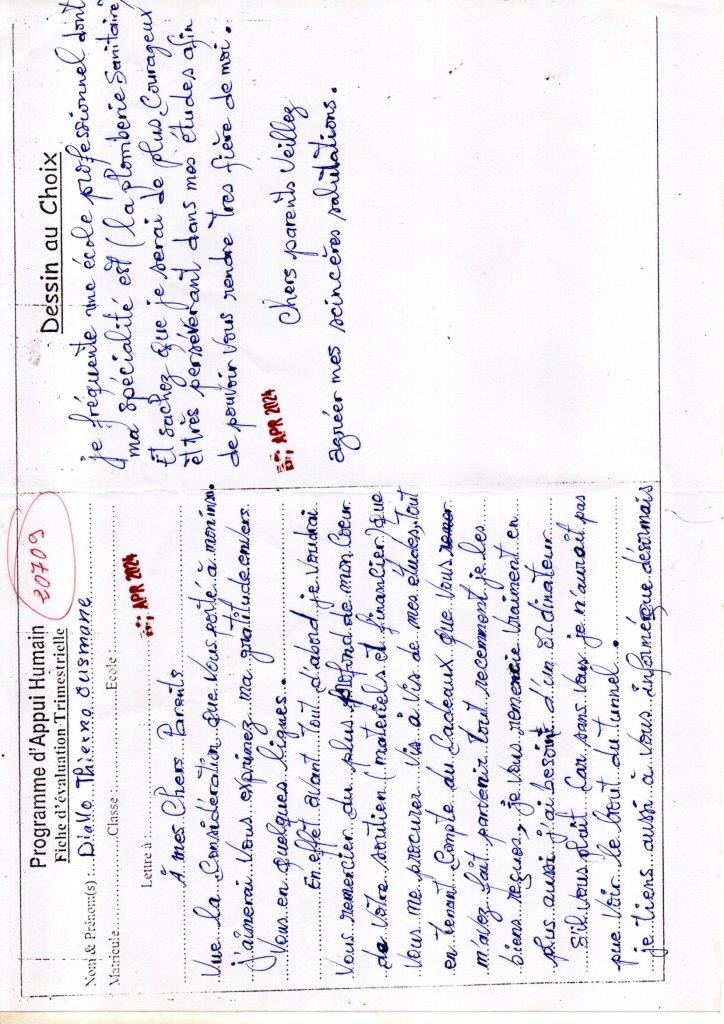 Programme d'Appui Humain
20709
Fiche d'évaluation Trimestrielle
Nom & Prénom(s) : Diallo Thierno Ousmane
Matricule Classe : Ecole :
APR 2024
Lettre à :
À mes Chers Parents
Vue la Considération que vous porté à mon
j'aimerai vous exprimez ma gratitude envers
Vous en quelques lignes.
En effet avant tout d'abord je voudrai
Vous remercier du plus profond de mon Coeur
de votre soutien (materiels et financier) que
Vous me procurer vis à vis de mes études, tout
en tenant Compte au Cadeaux que vous
m'avez fait parvenir tout recemment je les
biens reçues, je vous remercie vraiment en
plus aussi j'ai besoint d'un ordinateur
s'il vous plaît Car sans vous je n'aurait pas
pue voir le bout du tunnel.
je tiens aussi à vous informé que désormais
Dessin au Choix
je fréquente une école professionnel dont
ma spécialité est (la plomberie sanitaire
Et sachez que je serai de plus Courageux
et très persévérant dans mes études afin
de pouvoir vous rendre tres fière de moi.
APR 2024
Chers parents veillez
agréer mes scincères salutations.